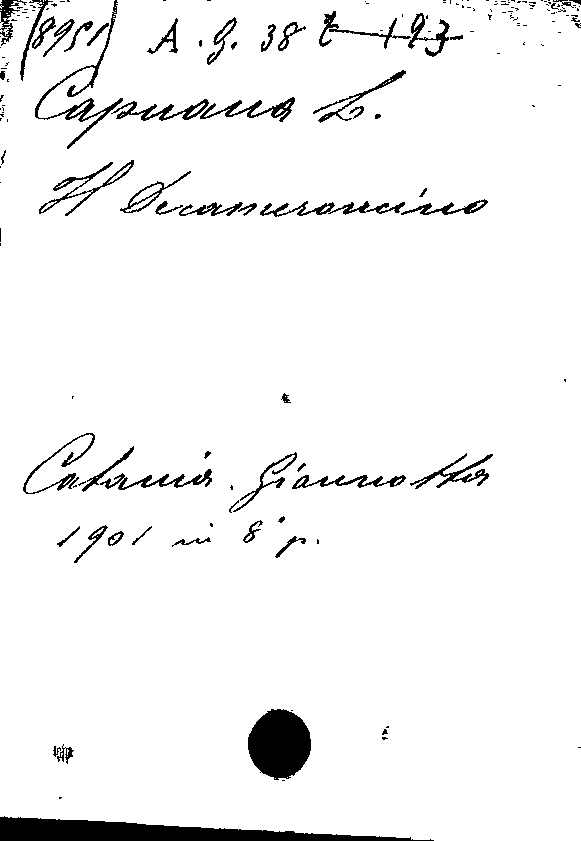 (8951) A. G. 38 193
Capuana L.
Il Decameroncino
Catania. Giannotta
1901 in 8° p.